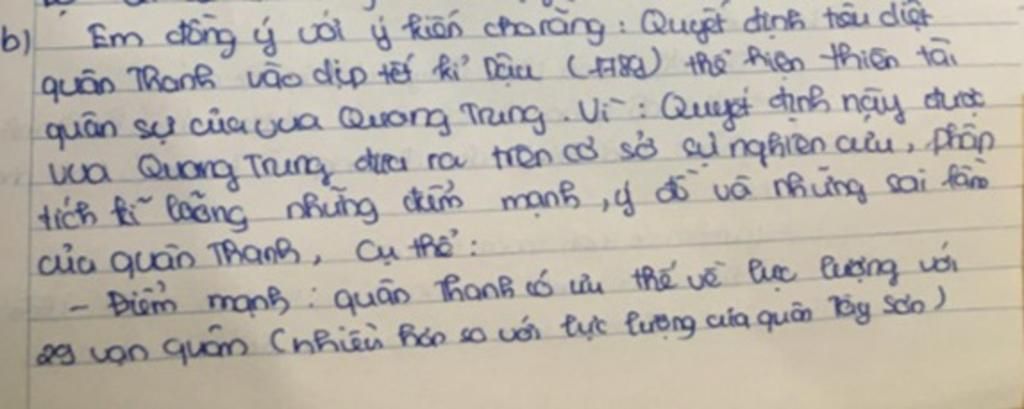 b) Em đồng ý với ý kiến cho rằng: Quyết định tiêu diệt
quân Thanh vào dịp tết kỉ Dậu (1789) thể hiện thiên tài
quân sự của vua Quang Trung. Vì: Quyết định này được
vua Quang Trung đưa ra trên cơ sở sự nghiên cứu, phân
tích kĩ lưỡng những điểm mạnh, ý đồ và những sai lầm
của quân Thanh, Cụ thể:
- Điểm mạnh: quân Thanh có ưu thế về lực lượng với
29 vạn quân (nhiều hơn so với lực lượng của quân Tây Sơn)